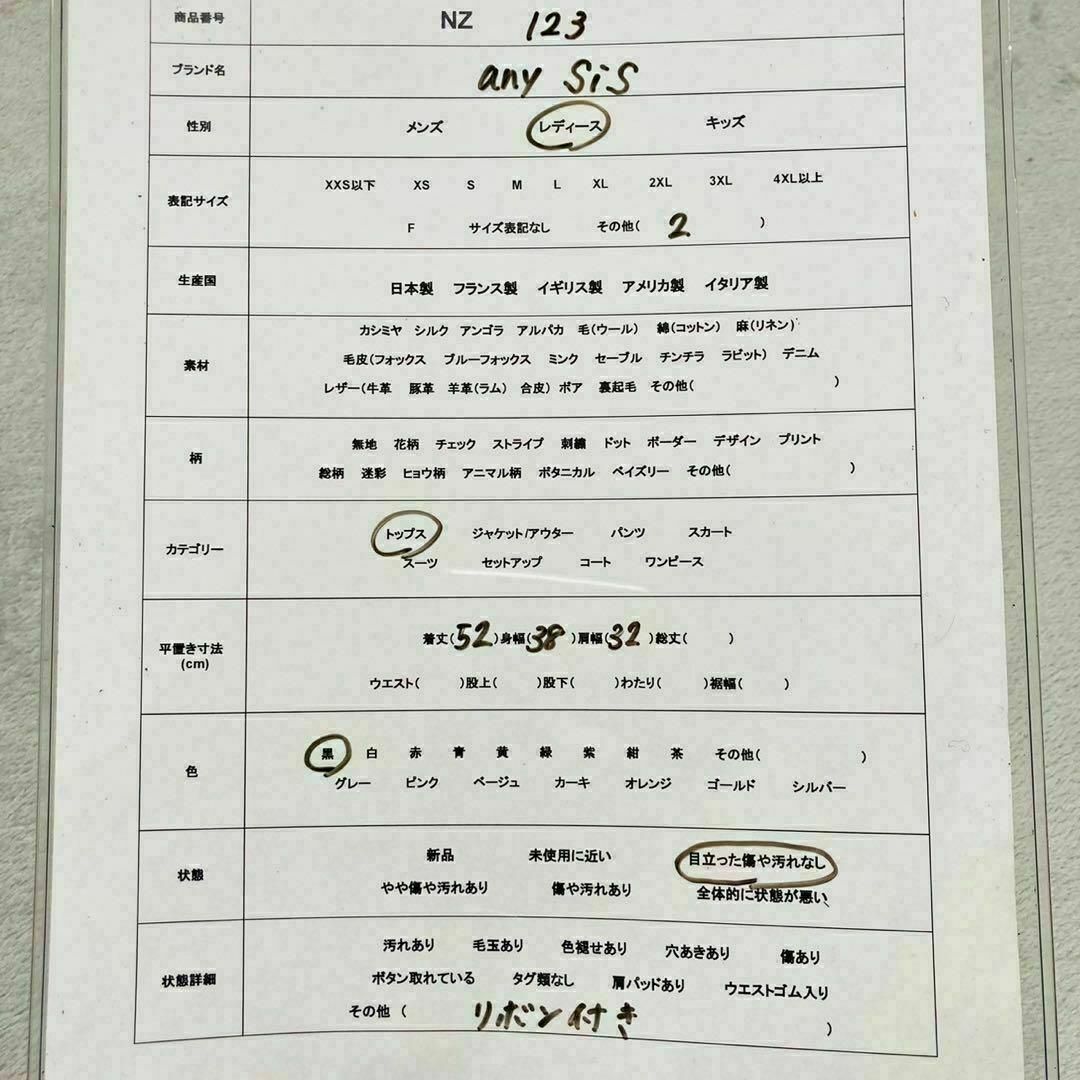 商品番号 NZ 123
ブランド名 any SiS
性別 メンズ レディース キッズ
表記サイズ XXS以下 XS S M L XL 2XL 3XL 4XL以上
F サイズ表記なし その他( 2 )
生産国 日本製 フランス製 イギリス製 アメリカ製 イタリア製
素材 カシミヤ シルク アンゴラ アルパカ 毛(ウール) 綿(コットン) 麻(リネン)
毛皮(フォックス ブルーフォックス ミンク セーブル チンチラ ラビット) デニム
レザー(牛革 豚革 羊革(ラム) 合皮) ボア 裏起毛 その他( )
柄 無地 花柄 チェック ストライプ 刺繍 ドット ボーダー デザイン プリント
総柄 迷彩 ヒョウ柄 アニマル柄 ボタニカル ペイズリー その他( )
カテゴリー トップス ジャケット/アウター パンツ スカート
スーツ セットアップ コート ワンピース
平置き寸法 (cm) 着丈(52)身幅(38)肩幅(32)総丈( )
ウエスト( )股上( )股下( )わたり( )裾幅( )
色 黒 白 赤 青 黄 緑 紫 紺 茶 その他( )
グレー ピンク ベージュ カーキ オレンジ ゴールド シルバー
状態 新品 未使用に近い 目立った傷や汚れなし
やや傷や汚れあり 傷や汚れあり 全体的に状態が悪い
状態詳細 汚れあり 毛玉あり 色褪せあり 穴あきあり 傷あり
ボタン取れている タグ類なし 肩パッドあり ウエストゴム入り
その他 ( リボン付き )